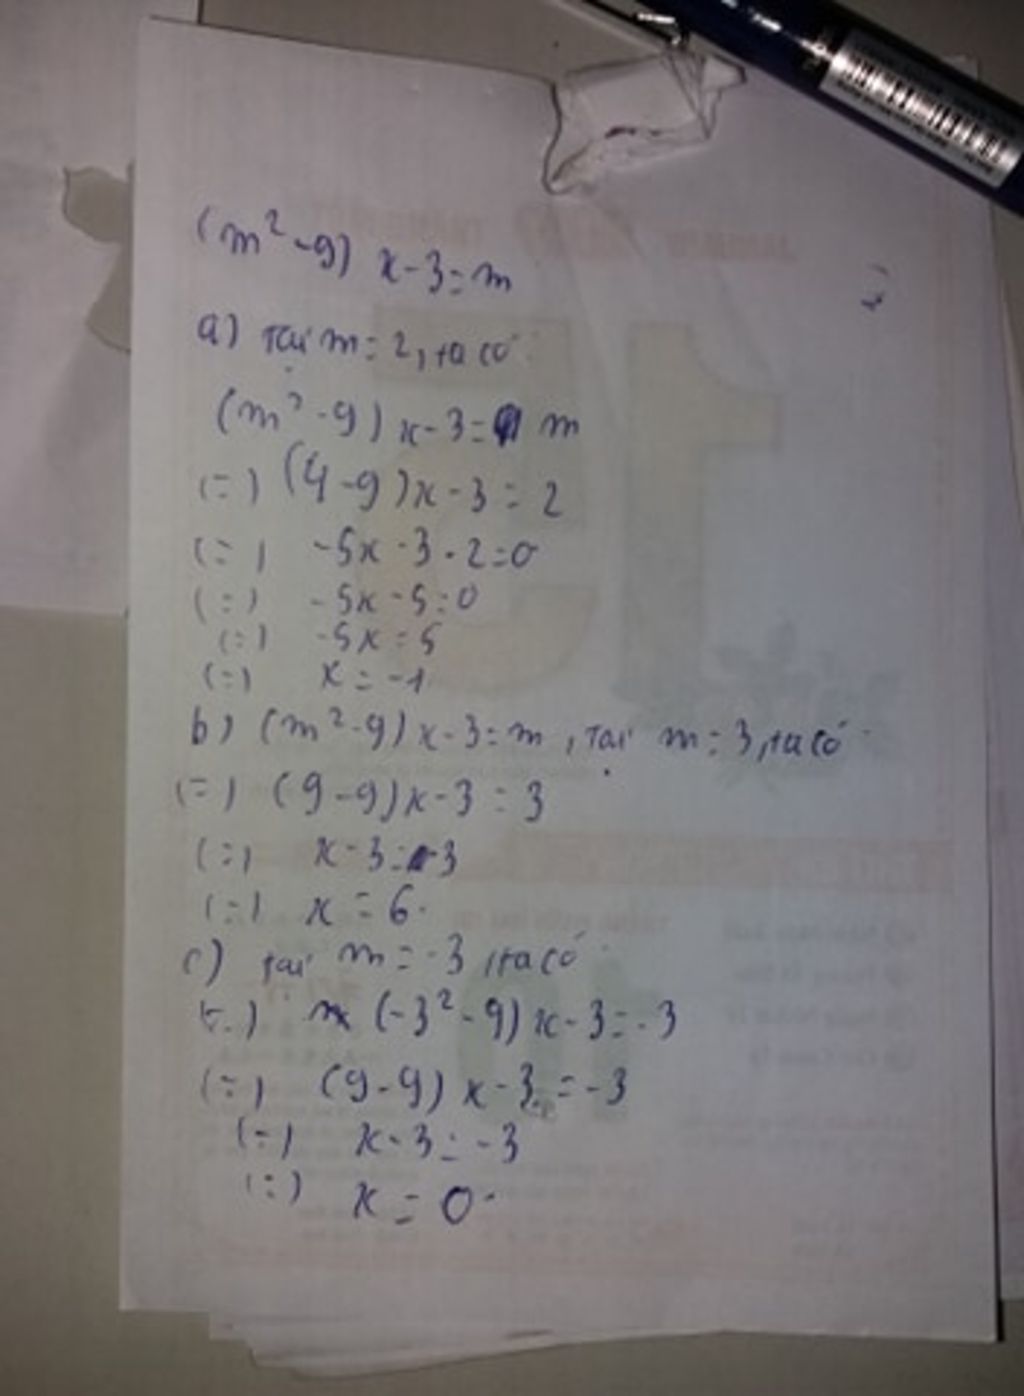 (m² - 9) x - 3 = m
a) Tại m = 2, ta có:
(m² - 9) x - 3 = m
(=) (4 - 9)x - 3 = 2
(=) -5x - 3 - 2 = 0
(=) -5x - 5 = 0
(=) -5x = 5
(=) x = -1
b) (m² - 9) x - 3 = m, tại m = 3, ta có:
(=) (9 - 9)x - 3 = 3
(=) x - 3 = 3
(=) x = 6.
c) tại m = -3, ta có:
(=) (-3² - 9) x - 3 = -3
(=) (9 - 9) x - 3 = -3
(=) x - 3 = -3
(=) x = 0.